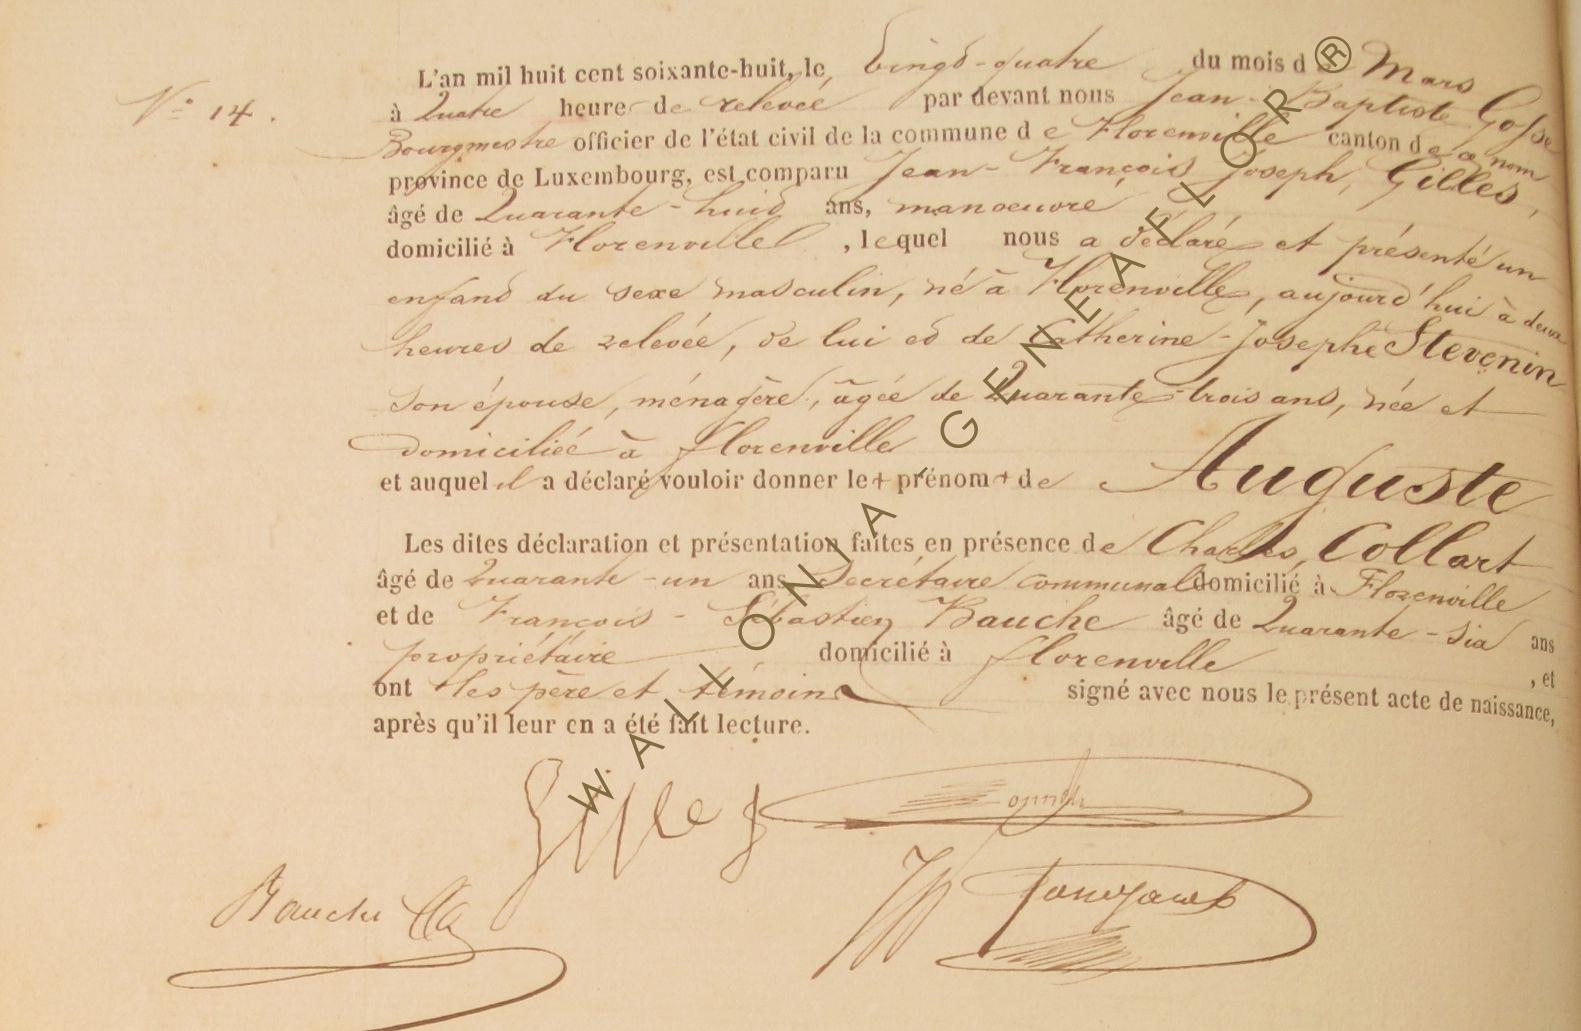 N° 14.
L'an mil huit cent soixante-huit, le Vingt-quatre du mois de Mars
à Quatre heures de relevée par devant nous Jean-Baptiste Gosse
Bourgmestre officier de l'état civil de la commune de Florenville canton de ce nom
province de Luxembourg, est comparu Jean-François Joseph, Gilles,
âgé de Quarante-huit ans, manoeuvre,
domicilié à Florenville, lequel nous a déclaré et présenté un
enfant du sexe masculin, né à Florenville, aujourd'hui à deux
heures de relevée, de lui et de Catherine-Josephe Stevenin
son épouse, ménagère, âgée de Quarante-trois ans, née et
domiciliée à florenville
et auquel il a déclaré vouloir donner le + prénom + de Auguste
Les dites déclaration et présentation faites en présence de Charles, Collart
âgé de Quarante-un ans Secrétaire communal domicilié à Florenville
et de François-Sébastien Bauche âgé de Quarante-six ans
propriétaire domicilié à florenville, et
ont les père et témoins signé avec nous le présent acte de naissance,
après qu'il leur en a été fait lecture.
Gilles
Bauche
WALLONIA-GENEAFLOR®